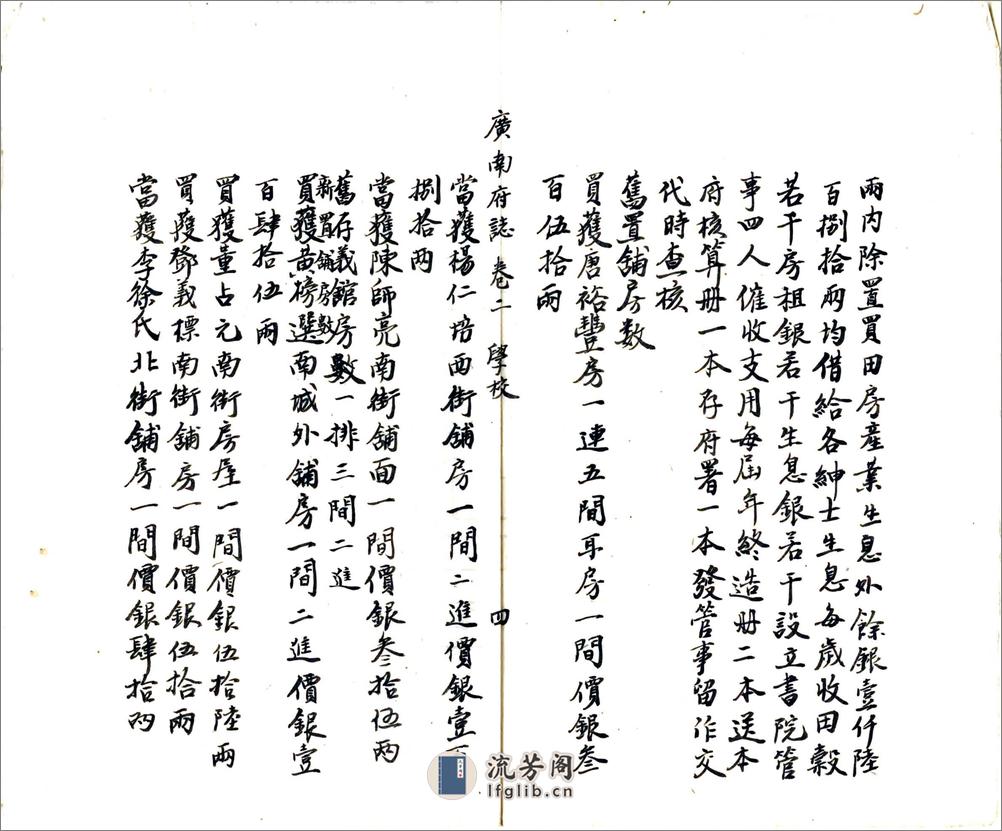 兩内除置買田房產業生息外餘銀壹仟陸
百捌拾兩均借給各紳士生息每歲收田穀
若干房租銀若干生息銀若干設立書院管
事四人催收支用每屆年終造册二本送本
府核算册一本存府署一本發管事留作交
代時查核
舊置舖房数
買獲唐裕豐房一連五間耳房一間價銀叁
百伍拾兩
廣南府誌 卷二 學校 四
當獲楊仁培西街舖房一間二進價銀壹百
捌拾兩
當獲陳師亮南街舖面一間價銀叁拾伍两
舊存義館房數一排三間二進
新置舖房數
買獲黄榜選南城外舖房一間二進價銀壹
百肆拾伍兩
買獲量占元南街房屋一間價銀伍拾陸兩
買獲鄧義標南街舖房一間價銀伍拾兩
當獲李徐氏北街舖房一間價銀肆拾两
流芳阁
lfglib.cn